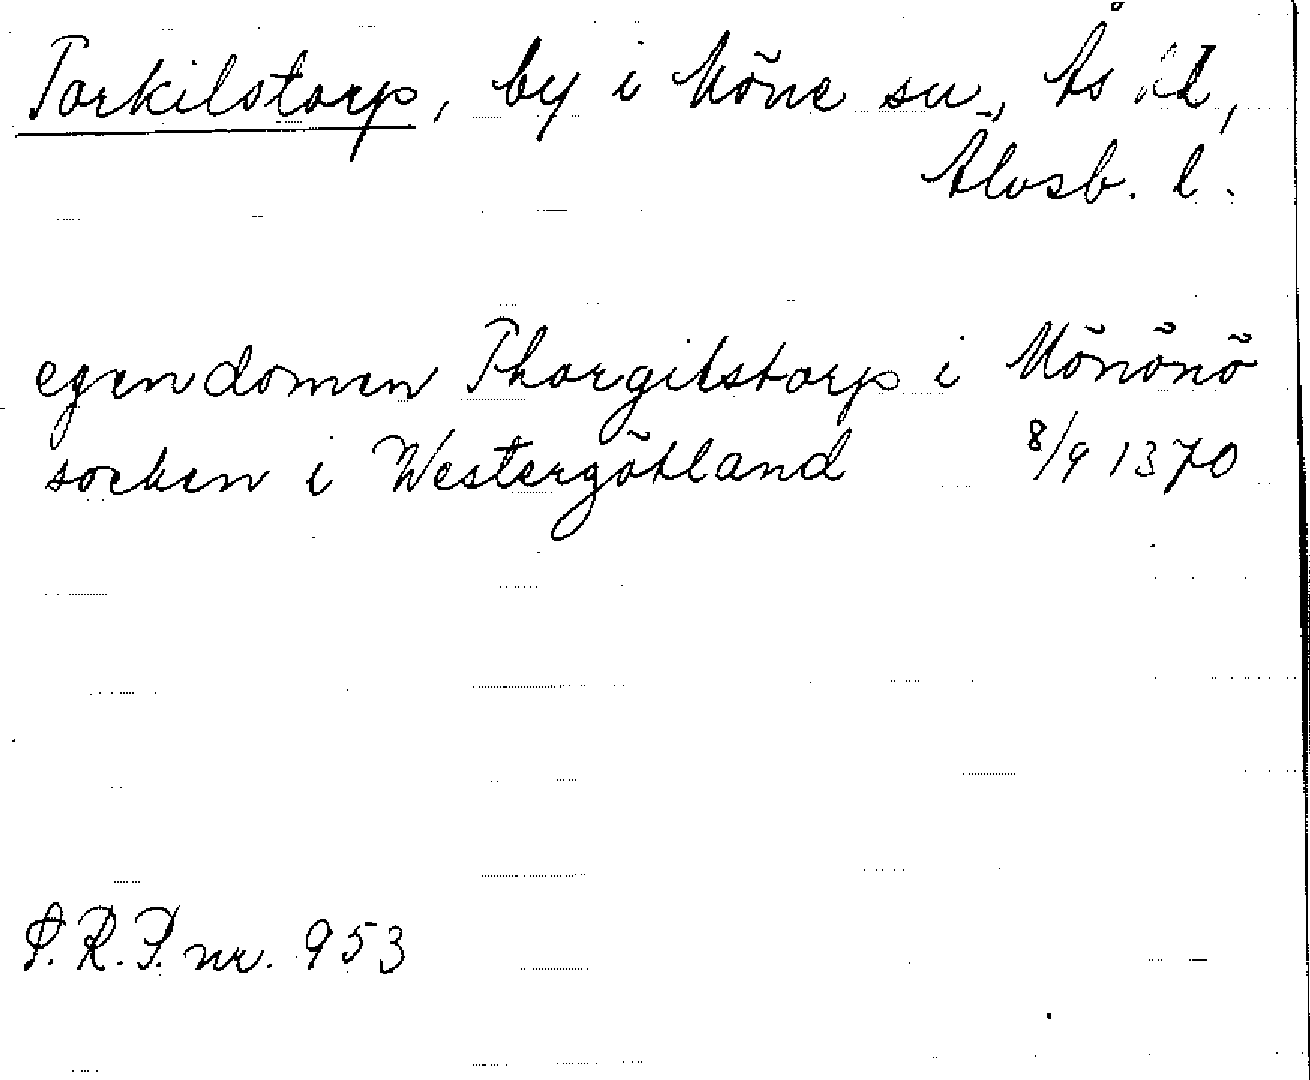 Torkilstorp, by i Möne sn, Ås hd,
Älvsb. l.
egendomen Thorgilstorp i Mönönö
socken i Westergöhland 8/9 1370
S.R.P. nr. 953